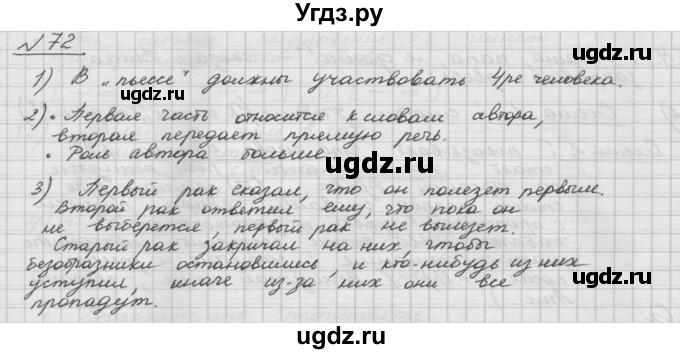 Угдз.ру
№ 72
1) В „пьессе" должны участвовать 4ре человека.
2) • Первая часть относится к словам автора,
вторая передает приямую речь.
• Роль автора больше
3) Первый рак сказал, что он полезет первым.
Второй рак ответил ему, что пока он
не выберется, первый рак не вылезет.
Старый рак закричал на них чтобы
безобразники остановились, и кто-нибудь из них
уступил, иначе из-за них они все
пропадут.
©Угдз.ру
©Угдз.ру
©Угдз.ру